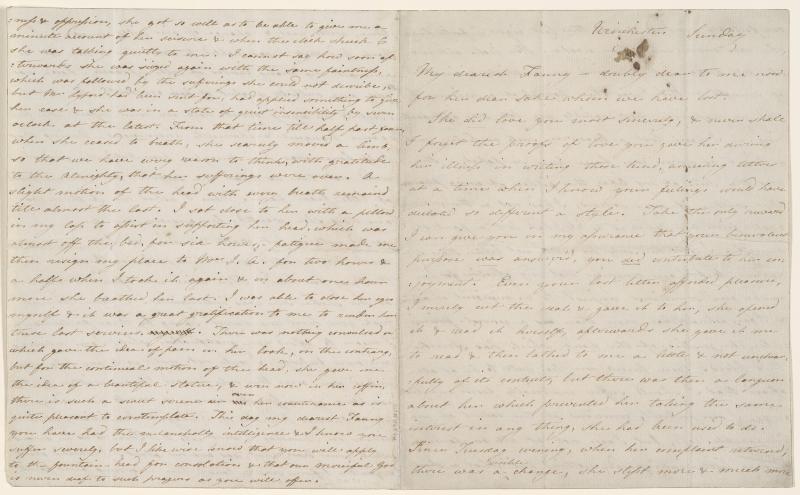 ness & oppression, she got so well as to be able to give me a
minute account of her seisure & when the clock struck 6
she was talking quietly to me. I cannot say how soon af-
terwards she was seized again with the same faintness,
which was followed by the sufferings she could not describe,
but Mr Lyford had been sent for, had applied something to give
her ease & she was in a state of quiet insensibility by seven
oclock at the latest. From that time till half past four,
when she ceased to breath, she scarcely moved a limb,
so that we have every reason to think, with gratitude
to the Almighty, that her sufferings were over. A
slight motion of the head with every breath remained
till almost the last. I sat close to her with a pillow
in my lap to assist in supporting her head, which was
almost off the bed, for six hours,- fatigue made me
then resign my place to Mrs J. A. for two hours &
a half when I took it again & in about one hour
more she breathed her last. I was able to close her eyes
myself & it was a great gratification to me to render her
these last services. There was nothing convulsed or
which gave the idea of pain in her look, on the contrary,
but for the continual motion of the head, she gave me
the idea of a beautiful statue, & even now in her coffin,
there is such a sweet serene air over her countenance as is
quite pleasant to contemplate. This day my dearest Fanny
you have had the melancholy intelligence & I know you
suffer severely, but I likewise know that you will apply
to the fountain head for consolation & that our merciful God
is never deaf to such prayers as you will offer.
Winchester Sunday
My dearest Fanny - doubly dear to me now
for her dear sake whom we have lost.
She did love you most sincerely, & never shall
I forget the proofs of love you gave her during
her illness in writing those kind, amusing letters
at a time when I know your feelings would have
dictated so different a style. Take the only reward
I can give you in my assurance that your benevolent
purpose was answered, you did contribute to her en-
joyment. Even your last letter afforded pleasure,
I merely cut the seal & gave it to her, she opened
it & read it herself, afterwards she gave it me
to read & then talked to me a little & not unchear-
fully of its contents, but there was then a languor
about her which prevented her taking the same
interest in any thing, she had been used to do.
Since Tuesday evening, when her complaint returned,
there was a visible change, she slept more & much more